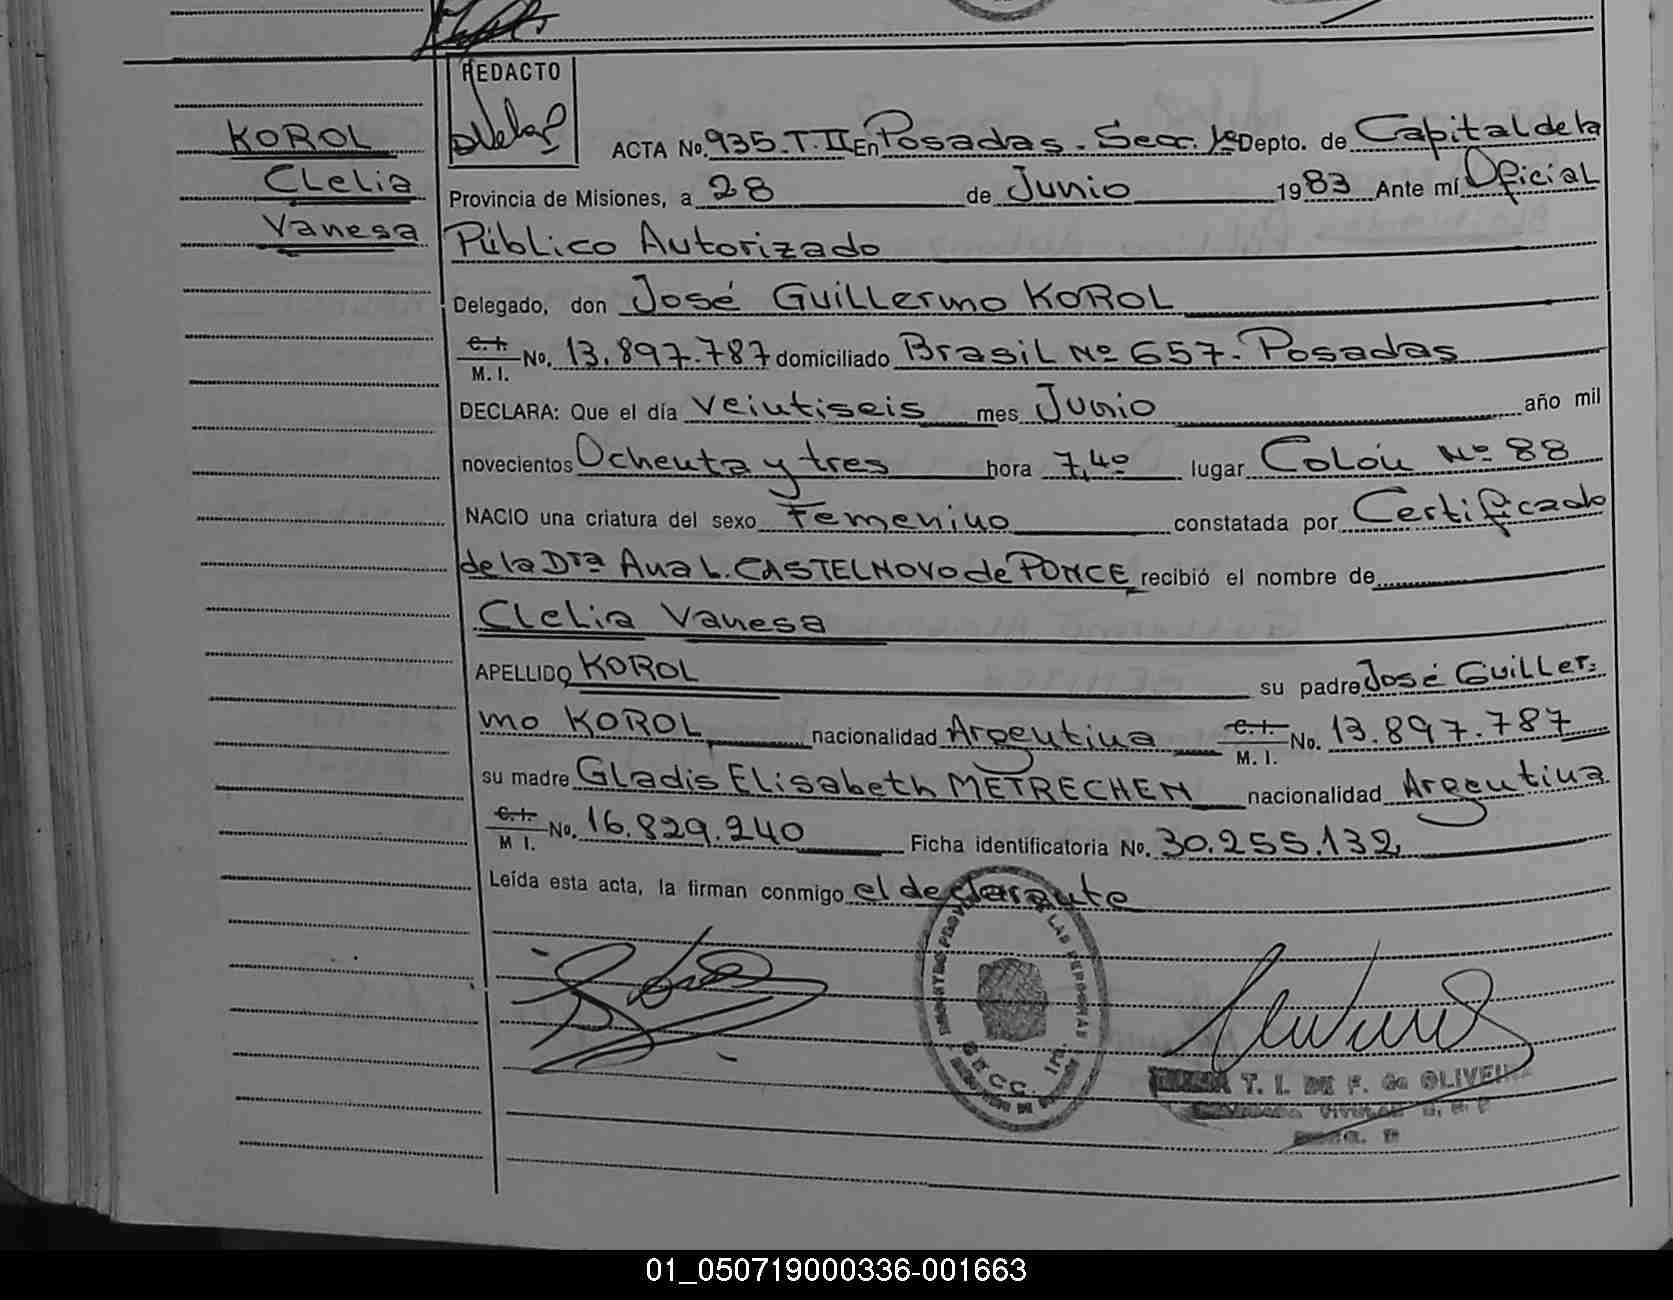 REDACTO
KOROL
Clelia
Vanesa
ACTA No. 935.T.II En Posadas. Secc. 1ª Depto. de Capital de la
Provincia de Misiones, a 28 de Junio 1983 Ante mí Oficial
Público Autorizado
Delegado, don José Guillermo KOROL
C. I. M. I. No. 13.897.787 domiciliado Brasil Nº 657. Posadas
DECLARA: Que el día veintiseis mes Junio año mil
novecientos Ochenta y tres hora 7,40 lugar Colón Nº 88
NACIO una criatura del sexo Femenino constatada por Certificado
de la Dra Ana L. CASTELNOVO de PONCE recibió el nombre de
Clelia Vanesa
APELLIDO KOROL su padre José Guiller-
mo KOROL nacionalidad Argentina C. I. M. I. No. 13.897.787
su madre Gladis Elisabeth METRECHEN nacionalidad Argentina
C. I. M I. No. 16.829.240 Ficha identificatoria No. 30.255.132
Leída esta acta, la firman conmigo el declarante
LAS PERSONAS
SECC. 1ra.
T. I. DE F. de OLIVEIRA
01_050719000336-001663